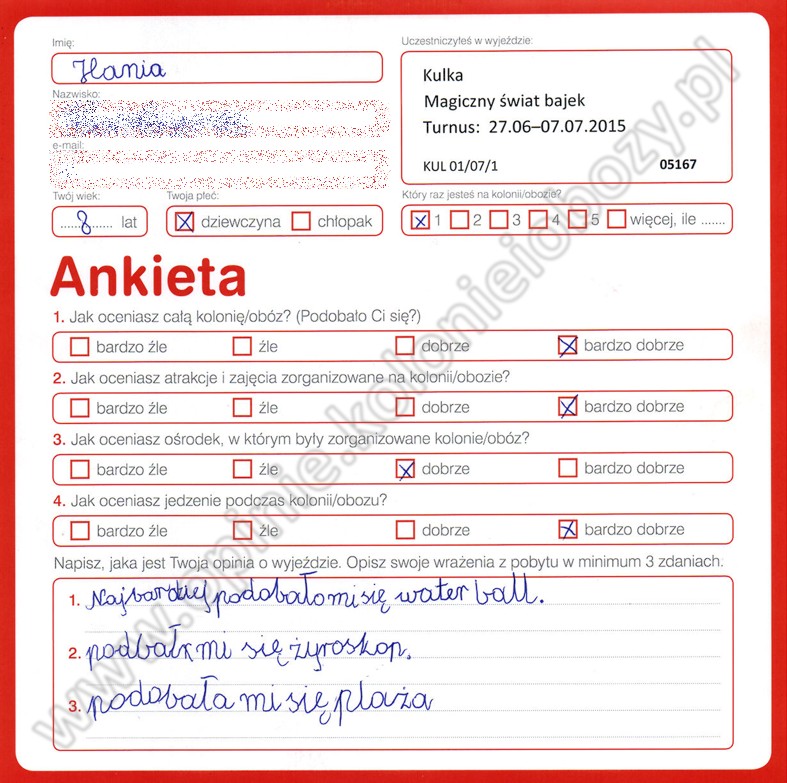 Imię:
Hania
Nazwisko:
e-mail:
Uczestniczyłeś w wyjeździe:
Kulka
Magiczny świat bajek
Turnus: 27.06–07.07.2015
KUL 01/07/1 05167
Twój wiek: Twoja płeć: Który raz jesteś na kolonii/obozie?
......8...... lat dziewczyna chłopak 1 2 3 4 5 więcej, ile .......
Ankieta
1. Jak oceniasz całą kolonię/obóz? (Podobało Ci się?)
bardzo źle źle dobrze bardzo dobrze
2. Jak oceniasz atrakcje i zajęcia zorganizowane na kolonii/obozie?
bardzo źle źle dobrze bardzo dobrze
3. Jak oceniasz ośrodek, w którym były zorganizowane kolonie/obóz?
bardzo źle źle dobrze bardzo dobrze
4. Jak oceniasz jedzenie podczas kolonii/obozu?
bardzo źle źle dobrze bardzo dobrze
Napisz, jaka jest Twoja opinia o wyjeździe. Opisz swoje wrażenia z pobytu w minimum 3 zdaniach.
1. Najbardziej podobało mi się water ball.
2. mi się żyroskop.
3. podobała mi się plaża
www.opinie.kolonieiobozy.pl